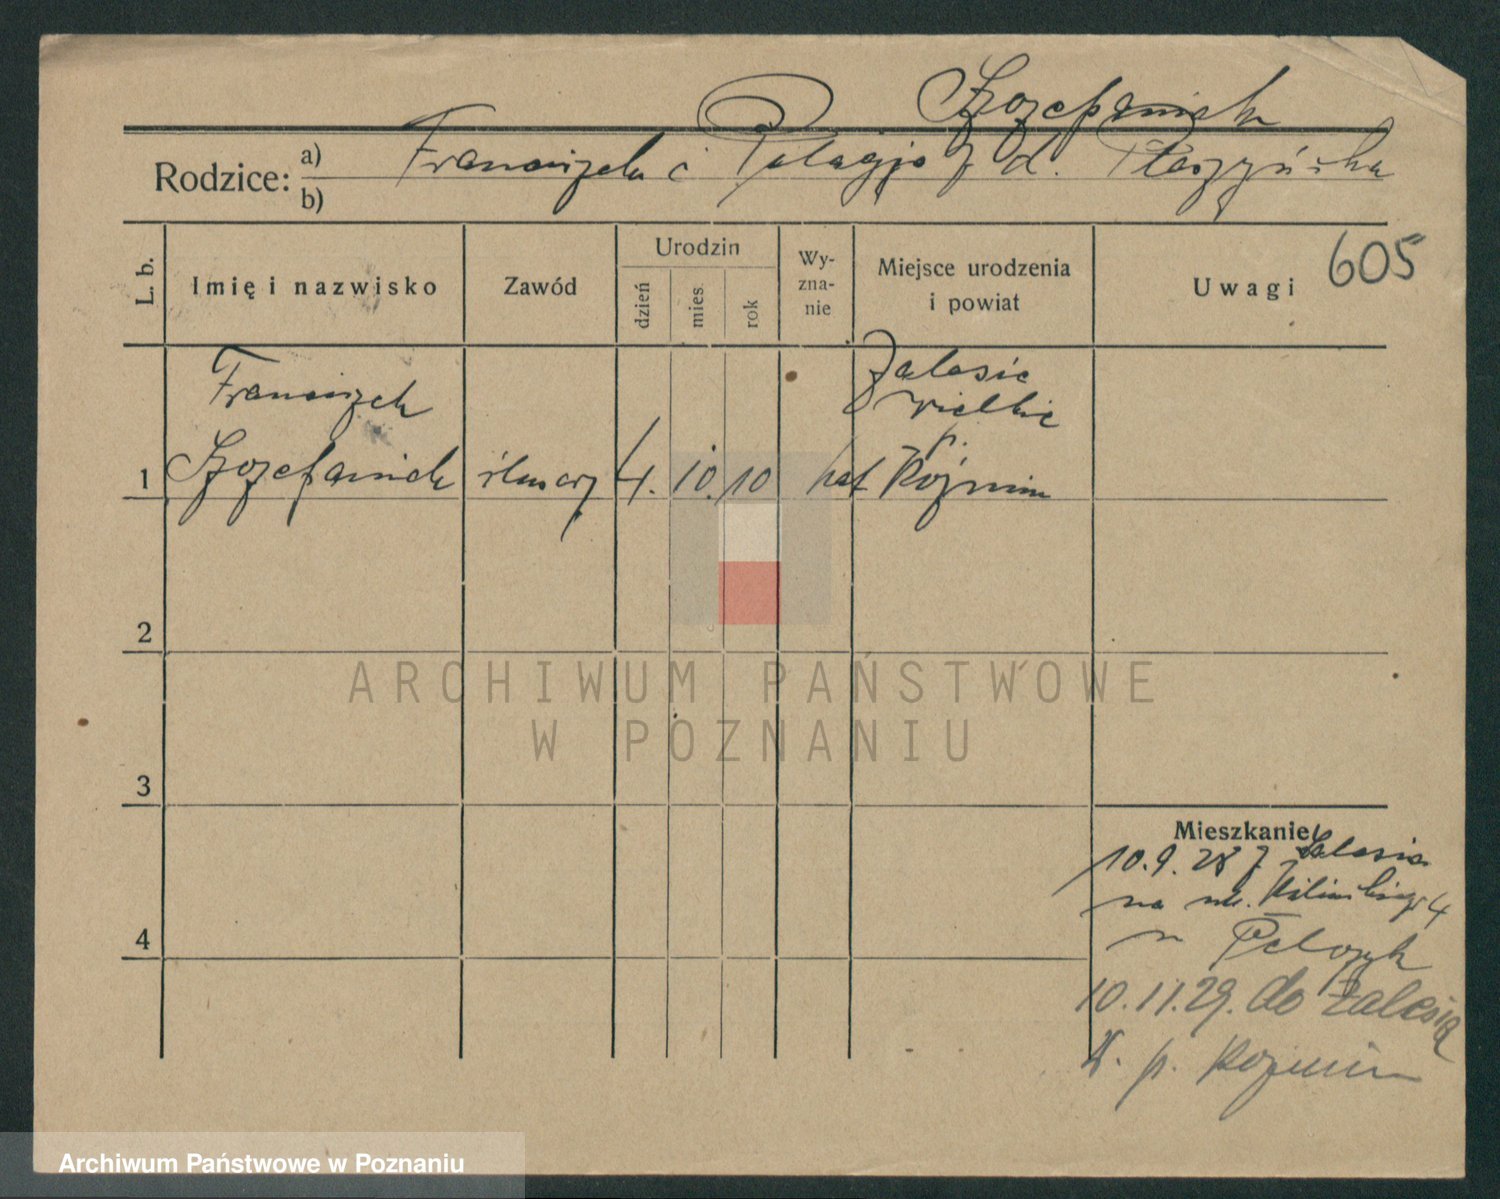 Szczepaniak
Rodzice: a) Franciszek i Pelagja z d. Płaszyńska
b)
L. b.
Imię i nazwisko
Zawód
Urodzin
dzień
mies.
rok
Wy-
zna-
nie
Miejsce urodzenia
i powiat
Uwagi
605
Franciszek
Zalesie
wielkie
p.
1 Szczepaniak ślusarz 4. 10. 10 kat. Koźmin
2
3
4
Mieszkanie
10.9.28 z Zalesia
na ul. Kilińskiego 4
10.11.29. do Zalesia
W. p. Koźmin
ARCHIWUM PAŃSTWOWE
W POZNANIU
Archiwum Państwowe w Poznaniu